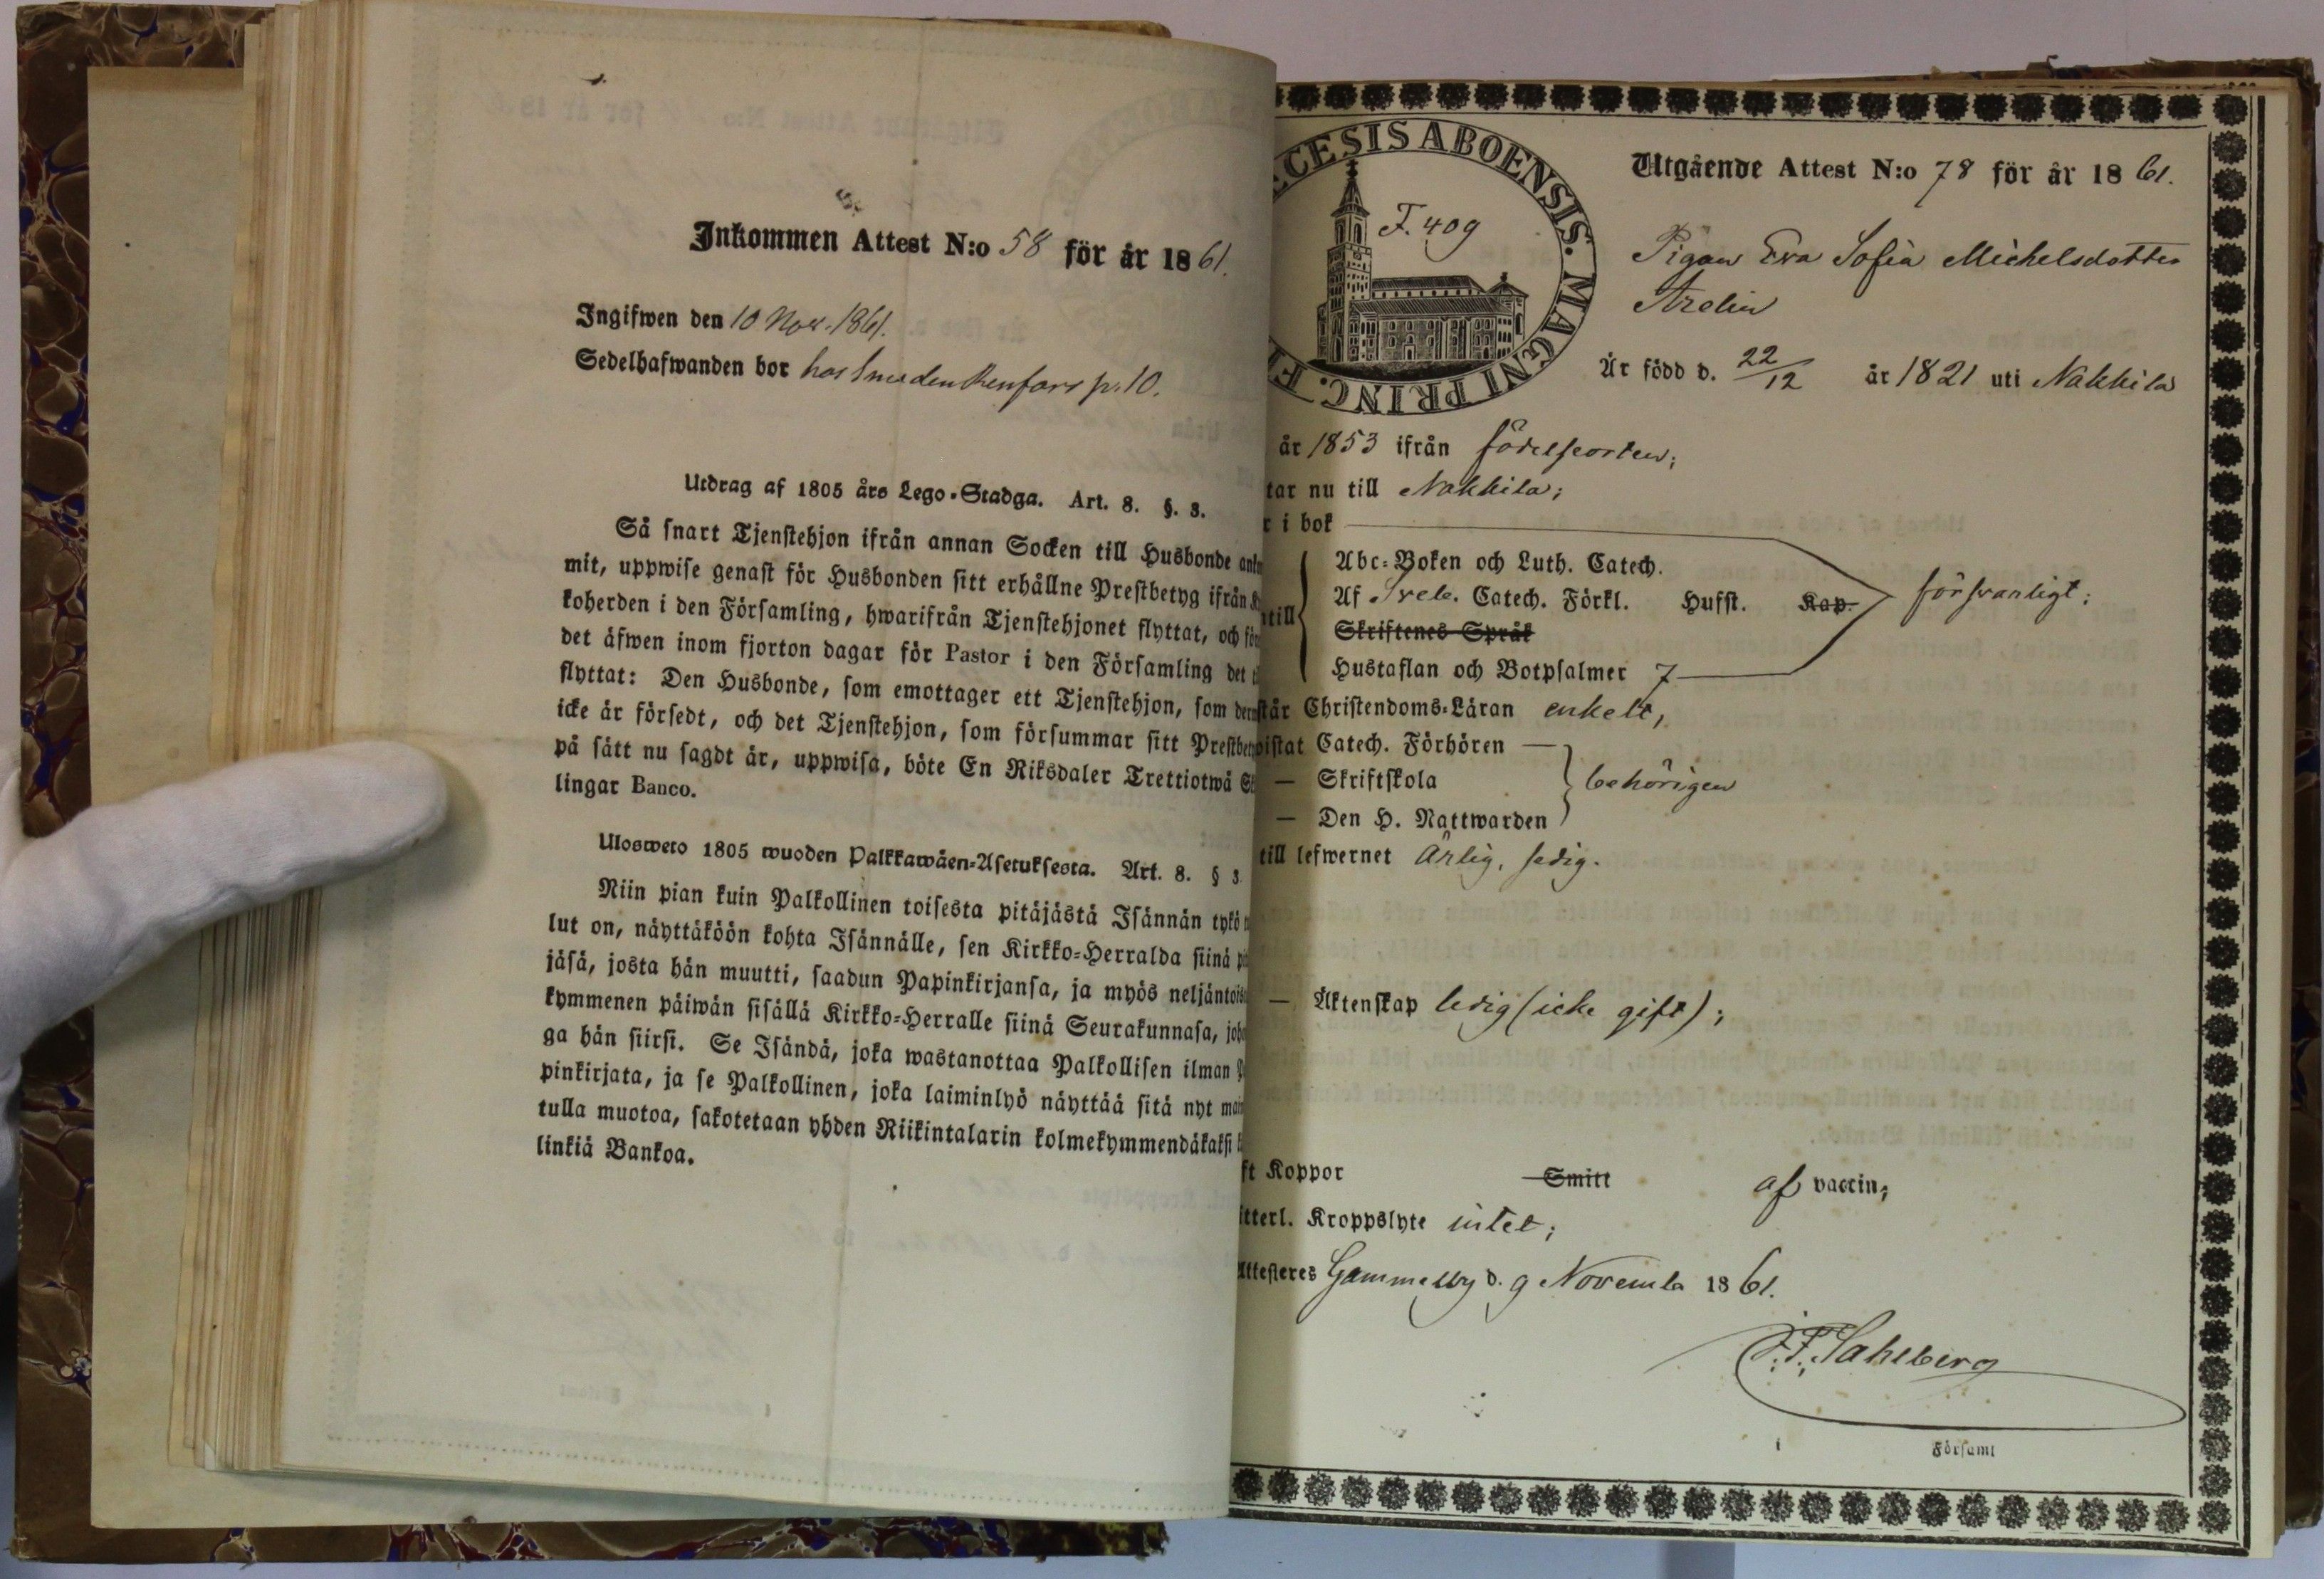 Inkommen Attest N:o 58 för år 1861.
Ingifwen den 10 Nov. 1861.
Sedelhafwanden bor hos Smeden Renfors p. 10.
Utdrag af 1805 års Lego-Stadga. Art. 8. §. 3.
Så snart Tjenstehjon ifrån annan Socken till Husbonde
mit, uppwise genast för Husbonden sitt erhållne Prestbetyg ifrån
koherden i den Församling, hwarifrån Tjenstehjonet flyttat, och
det äfwen inom fjorton dagar för Pastor i den Församling det
flyttat: Den Husbonde, som emottager ett Tjenstehjon, som
icke är försedt, och det Tjenstehjon, som försummar sitt
på sätt nu sagdt är, uppwisa, böte En Riksdaler Trettiotwå
lingar Banco.
Ulosweto 1805 wuoden Palkkawäen-Asetuksesta. Art. 8. § 3.
Niin pian kuin Palkollinen toisesta pitäjästä Isännän tykö
lut on, näyttäköön kohta Isännälle, sen Kirkko-Herralda siinä
jäsä, josta hän muutti, saadun Papinkirjansa, ja myös
kymmenen päiwän sisällä Kirkko-Herralle siinä Seurakunnasa,
ga hän siirsi. Se Isändä, joka wastanottaa Palkollisen ilman
pinkirjata, ja se Palkollinen, joka laiminlyö näyttää sitä nyt
tulla muotoa, sakotetaan yhden Riikintalarin kolmekymmendäkaksi
linkiä Bankoa.
CESIS ABOENSIS. MAGNI PRINC. F
F. 409
Utgående Attest N:o 78 för år 1861.
Pigan Eva Sofia Michelsdotter
Arelin
Är född d. 22/12 år 1821 uti Nakkila
år 1853 ifrån födelseorten;
tar nu till Nakkila;
r i bok
Abc-Boken och Luth. Catech.
Af Sveb. Catech. Förkl. Husst. Kap. försvarligt;
till
Skriftenes Språk
Hustaflan och Botpsalmer 7
står Christendoms-Läran enkelt,
istat Catech. Förhören
— Skriftskola behörigen
— Den H. Nattwarden
till lefwernet ärlig, sedig.
— Äktenskap ledig (icke gift);
ft Koppor Smitt af vaccin;
tterl. Kroppslyte intet;
Attesteres Gammelby d. 9 November 1861.
F. F. Sahlberg
i Församl